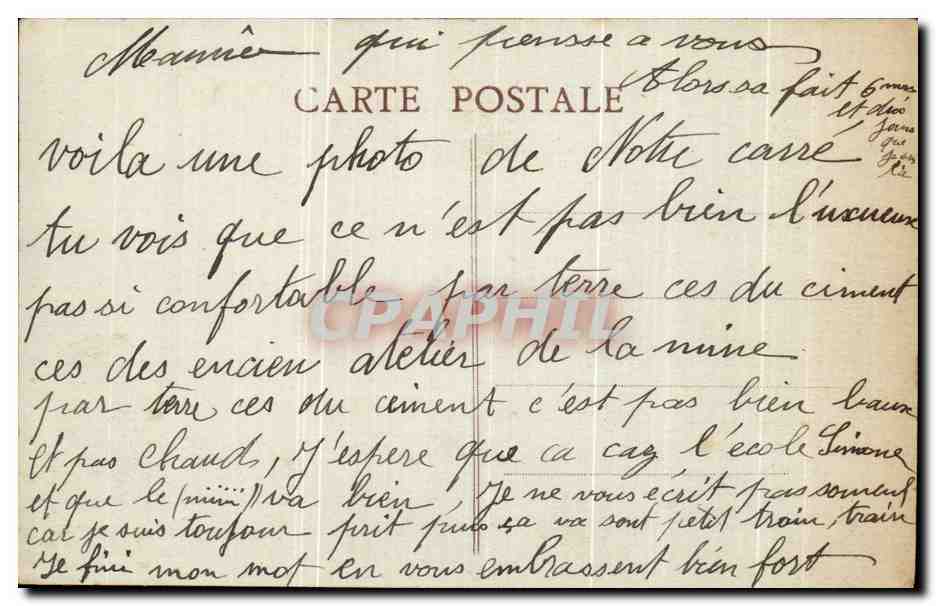 qui pensse a vous
Alors sa fait 6 mois
et dix
jours
que
là
CARTE POSTALE
voila une photo de Notre carré
tu vois que ce n'est pas bien l'uxueux
pas si confortable par terre ces du ciment
CPAPHIL
ces des encien atelier de la mine
par terre ces du ciment c'est pas bien baux
et pas chaud, J'espere que ca l'école Simone
et que le va bien, Je ne vous écrit pas souvent
car je suis toujour prit puis ça va sont petit train, train
Je fini mon mot en vous embrassent bien fort